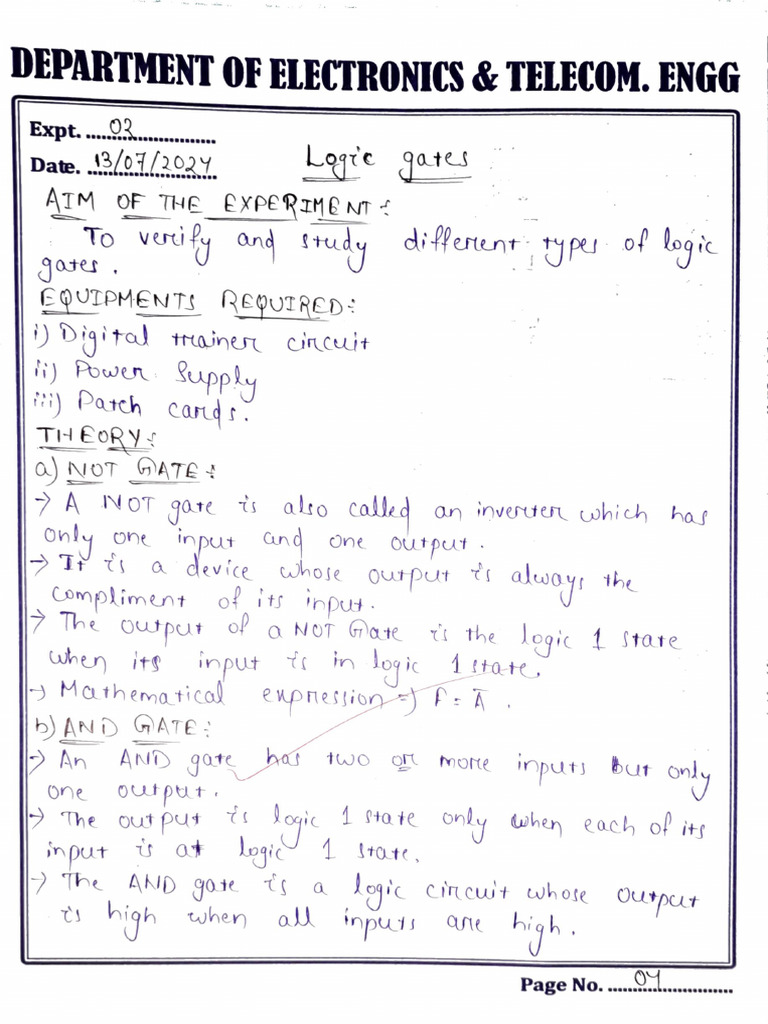 DEPARTMENT OF ELECTRONICS & TELECOM. ENGG
Expt. 02
Date. 13/07/2024
Logic gates
AIM OF THE EXPERIMENT:
To verify and study different types of logic
gates.
EQUIPMENTS REQUIRED:
i) Digital trainer circuit
ii) Power Supply
iii) Patch cards.
THEORY:
a) NOT GATE:
→ A NOT gate is also called an inverter which has
only one input and one output.
→ It is a device whose output is always the
compliment of its input.
→ The output of a NOT Gate is the logic 1 state
when its input is in logic 1 state.
→ Mathematical expression => F = Ā .
b) AND GATE:
→ An AND gate has two or more inputs but only
one output.
→ The output is logic 1 state only when each of its
input is at logic 1 state.
→ The AND gate is a logic circuit whose output
is high when all inputs are high.
Page No. 04